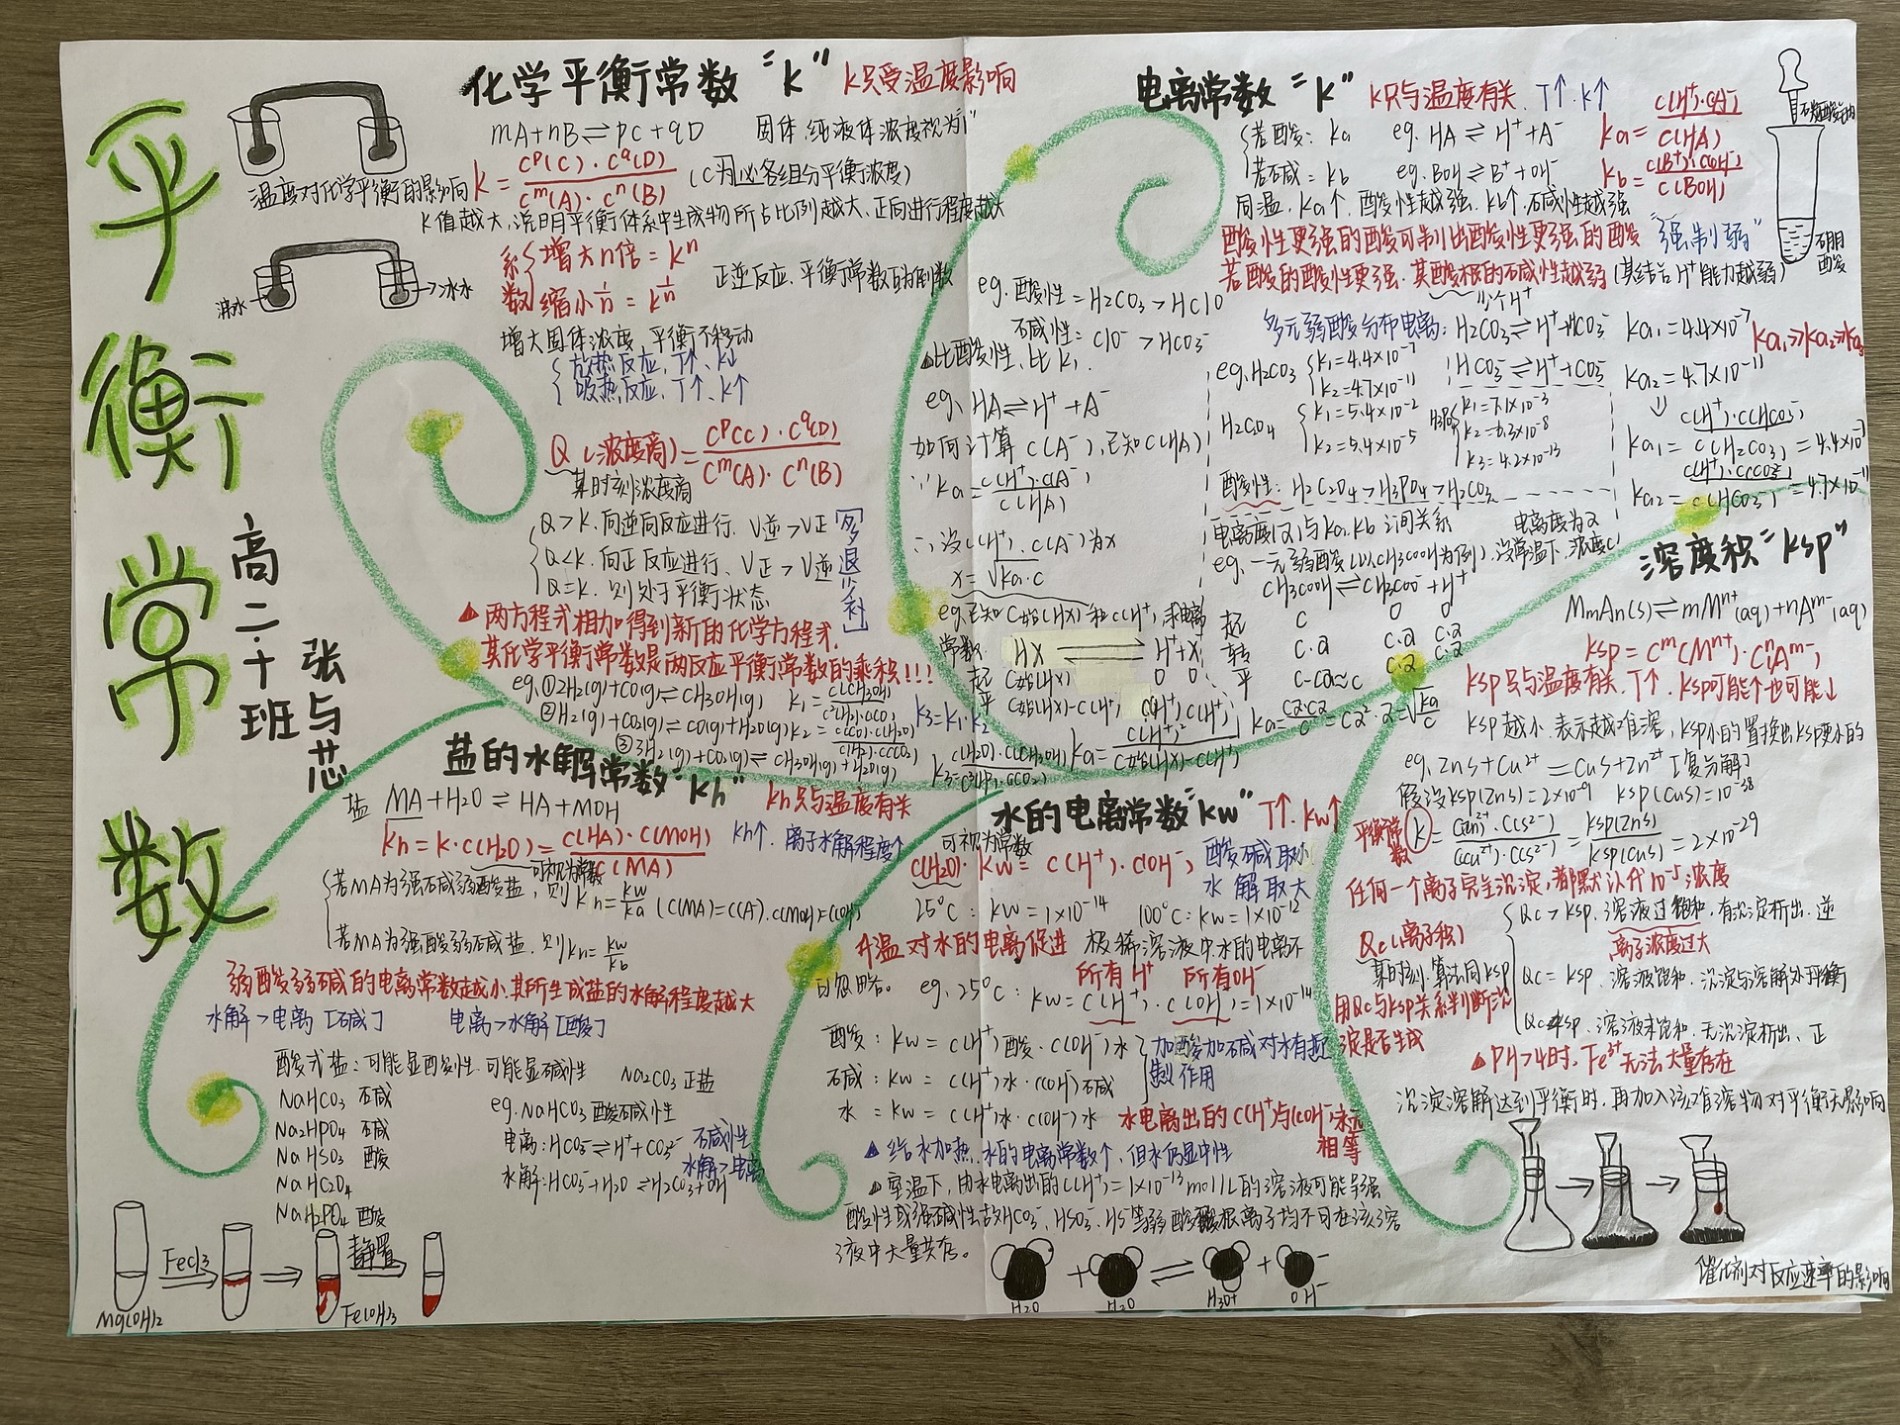 平衡常数
高二·十班
张与芯
化学平衡常数"K" K只受温度影响
mA+nB⇌pC+qD 固体.纯液体浓度视为"1"
K=C^p(C)·C^q(D)/C^m(A)·C^n(B) (C为必各组分平衡浓度)
温度对化学平衡的影响
K值越大,说明平衡体系中生成物所占比例越大、正向进行程度越大
系数{增大n倍=K^n
缩小1/n=K^1/n
正逆反应.平衡常数的倒数
沸水
冰水
增大固体浓度、平衡不移动
{放热反应,T↑、K↓
吸热反应,T↑、K↑
Q(浓度商)=C^p(C)·C^q(D)/C^m(A)·C^n(B)
某时刻浓度商
{Q>K.向逆向反应进行.V逆>V正
Q<K.向正反应进行、V正>V逆
Q=K.则处于平衡状态
[多退少补]
▲两方程式相加得到新的化学方程式.
其化学平衡常数是两反应平衡常数的乘积!!!
eg.①2H2(g)+CO(g)⇌CH3OH(g) K1=C(CH3OH)/C²(H2)·C(CO)
②H2(g)+CO2(g)⇌CO(g)+H2O(g) K2=C(CO)·C(H2O)/C(H2)·C(CO2)
③3H2(g)+CO2(g)⇌CH3OH(g)+H2O(g)
K3=K1·K2
K3=C(H2O)·C(CH3OH)/C³(H2)·C(CO2)
电离常数"K" K只与温度有关.T↑.K↑
{若酸:Ka eg.HA⇌H⁺+A⁻ Ka=C(H⁺)·C(A⁻)/C(HA)
若碱=Kb eg.BOH⇌B⁺+OH⁻ Kb=C(B⁺)·C(OH⁻)/C(BOH)
同温.Ka↑.酸性越强.Kb↑.碱性越强
酸性更强的酸可制出酸性更强的酸 "强制弱"
若酸的酸性更强.其酸根的碱性越弱(其结合H⁺能力越弱)
少个H⁺
硼酸
eg.酸性=H2CO3>HClO
碱性:ClO⁻>HCO3⁻
▲比酸性、比K1.
多元弱酸分布电离:H2CO3⇌H⁺+HCO3⁻ Ka1=4.4×10⁻⁷
HCO3⁻⇌H⁺+CO3²⁻ Ka2=4.7×10⁻¹¹
Ka1>>Ka2>>Ka3
eg.H2CO3{K1=4.4×10⁻⁷
K2=4.7×10⁻¹¹
H2C2O4{K1=5.4×10⁻²
K2=5.4×10⁻⁵
{K1=7.1×10⁻³
K2=6.3×10⁻⁸
K3=4.2×10⁻¹³
Ka1=C(H⁺)·C(HCO3⁻)/C(H2CO3)=4.4×10⁻⁷
Ka2=C(H⁺)·C(CO3²⁻)/C(HCO3⁻)=4.7×10⁻¹¹
酸性:H2C2O4>H3PO4>H2CO3
eg、HA⇌H⁺+A⁻
如何计算C(A⁻),已知C(HA)
∵Ka=C(H⁺)·C(A⁻)/C(HA)
∴设C(H⁺).C(A⁻)为x
x=√Ka·C
电离度(α)与Ka.Kb之间关系 电离度为α
eg、一元弱酸(以CH3COOH为例).设常温下.浓度C
CH3COOH⇌CH3COO⁻+H⁺
起 C 0 0
转 C·α C·α C·α
平 C-Cα≈C C·α C·α
Ka=Cα·Cα/C=Cα² α=√Ka/C
eg.已知C始(HX)和C(H⁺),求电离
常数. HX⇌H⁺+X⁻
起 C始(HX) 0 0
平 C始(HX)-C(H⁺) C(H⁺) C(H⁺)
Ka=C(H⁺)²/C始(HX)-C(H⁺)
溶度积"Ksp"
MmAn(s)⇌mMⁿ⁺(aq)+nAᵐ⁻(aq)
Ksp=Cᵐ(Mⁿ⁺)·Cⁿ(Aᵐ⁻)
Ksp只与温度有关.T↑.Ksp可能↑也可能↓
Ksp越小.表示越难溶,Ksp小的置换出Ksp更小的
eg.ZnS+Cu²⁺=CuS+Zn²⁺[复分解]
假设Ksp(ZnS)=2×10⁻⁹ Ksp(CuS)=10⁻³⁸
平衡常数K=C(Zn²⁺)·C(S²⁻)/C(Cu²⁺)·C(S²⁻)=Ksp(ZnS)/Ksp(CuS)=2×10⁻²⁹
任何一个离子完全沉淀,都默认为10⁻⁵浓度
Qc(离子积)
某时刻.算法同Ksp
用Qc与Ksp关系判断沉
淀是否生成
{Qc>Ksp.溶液过饱和,有沉淀析出.逆
离子浓度过大
Qc=Ksp.溶液饱和.沉淀与溶解处平衡
Qc<Ksp.溶液未饱和.无沉淀析出、正
▲PH>4时,Fe³⁺无法大量存在
沉淀溶解达到平衡时.再加入该难溶物对平衡无影响
催化剂对反应速率的影响
盐的水解常数"Kh" Kh只与温度有关
盐 MA+H2O⇌HA+MOH
Kh=K·C(H2O)=C(HA)·C(MOH)/C(MA) Kh↑.离子水解程度↑
可视为常数
{若MA为强碱弱酸盐,则Kh=Kw/Ka (C(MA)=C(A).C(MOH)=C(OH))
若MA为强酸弱碱盐.则Kh=Kw/Kb
弱酸弱碱的电离常数越小.其所生成盐的水解程度越大
水解>电离[碱] 电离>水解[酸]
酸式盐:可能显酸性.可能显碱性 Na2CO3正盐
NaHCO3 碱
Na2HPO4 碱
NaHSO3 酸
NaHC2O4
NaH2PO4 酸
eg.NaHCO3酸碱性
电离:HCO3⁻⇌H⁺+CO3²⁻
水解:HCO3⁻+H2O⇌H2CO3+OH⁻
碱性
水解>电离
FeCl3
静置
Mg(OH)2
Fe(OH)3
水的电离常数"Kw" T↑.Kw↑
可视为常数
C(H2O)·Kw=C(H⁺)·C(OH⁻) 酸碱取小
水解取大
25℃:Kw=1×10⁻¹⁴ 100℃:Kw=1×10⁻¹²
升温对水的电离促进 极稀溶液中水的电离不
可忽略。 eg.25℃:Kw=C(H⁺)·C(OH⁻)=1×10⁻¹⁴
所有H⁺ 所有OH⁻
酸:Kw=C(H⁺)酸·C(OH⁻)水
碱:Kw=C(H⁺)水·C(OH⁻)碱
水=Kw=C(H⁺)水·C(OH⁻)水
}加酸加碱对水有抑
制作用
水电离出的C(H⁺)与C(OH⁻)永远
相等
▲给水加热.水的电离常数↑.但水仍显中性
▲室温下,由水电离出的C(H⁺)=1×10⁻¹³mol/L的溶液可能呈强
酸性或强碱性故HCO3⁻、HSO3⁻、HS⁻等弱酸酸根离子均不可在该溶
液中大量共存。
H2O + H2O ⇌ H3O⁺ + OH⁻